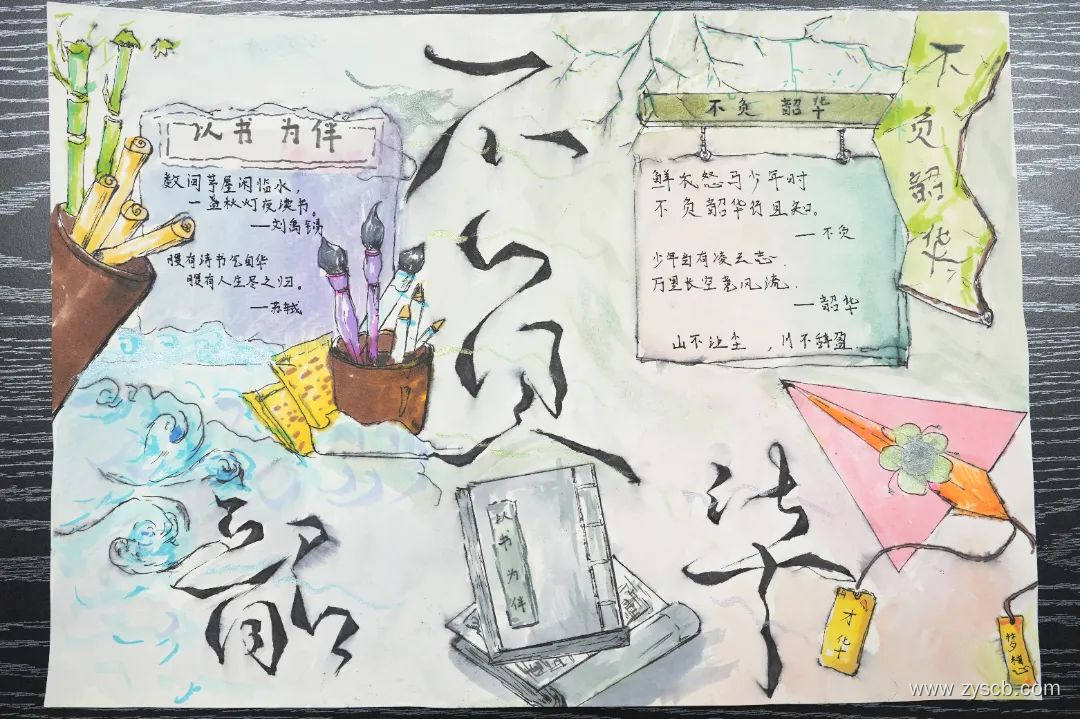 以书为伴
数间茅屋闲临水,
一盏秋灯夜读书。
—刘禹锡
腹有诗书气自华
腹有人生尽之归。
—苏轼
不负韶华
不负韶华
鲜衣怒马少年时
不负韶华行且知。
—不负
少年自有凌云志.
万里长空竞风流.
—韶华
山不让尘,川不辞盈.
不负韶华
以书为伴
才华
梦想
www.zyscb.com